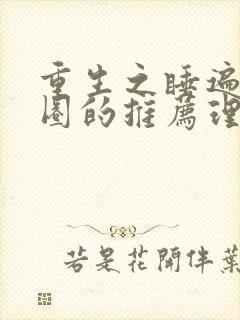 重生之睡遍
圈的推薦理
若是花開伴葉